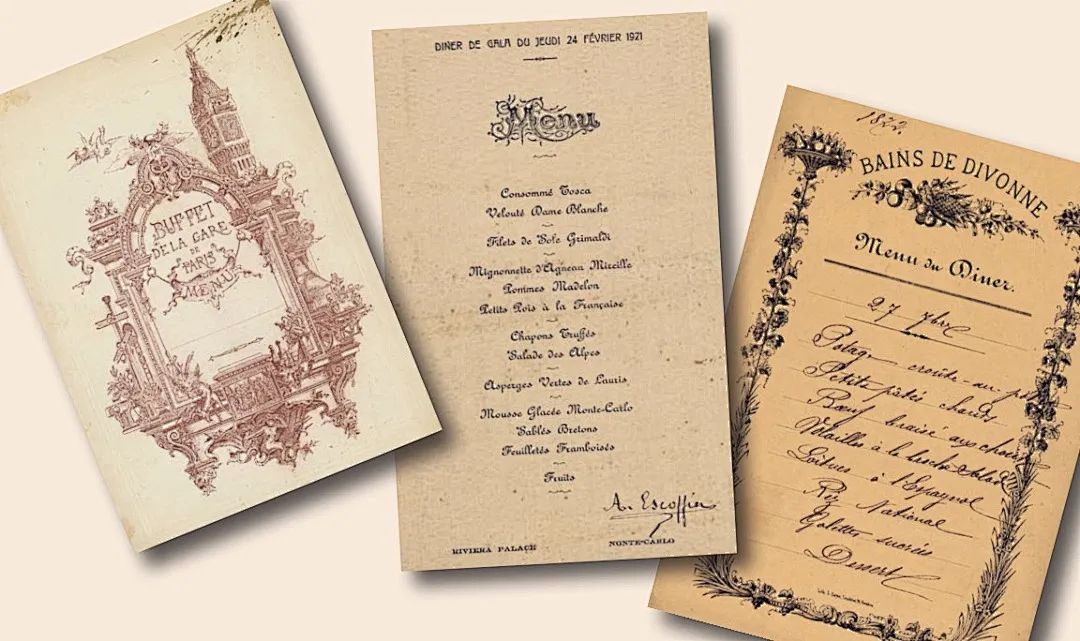 BUFFET
DE LA GARE
DE
PARIS
MENU
DINER DE GALA DU JEUDI 24 FÉVRIER 1921
Menu
Consommé Tosca
Velouté Dame Blanche
Filets de Sole Grimaldi
Mignonnette d'Agneau Mireille
Pommes Madelon
Petits Pois à la Française
Chapons Truffés
Salade des Alpes
Asperges Vertes de Lauris
Mousse Glacée Monte-Carlo
Sablés Bretons
Feuilletés Framboisés
Fruits
A. Escoffier
RIVIERA PALACE
MONTE-CARLO
BAINS DE DIVONNE
Menu du Diner.
27 7bre
Potage croûte-au-pot
Petits pâtés chauds
Bœuf braisé aux choux
à la
à l'Espagnol
Riz National
Galettes sucrées
Dessert